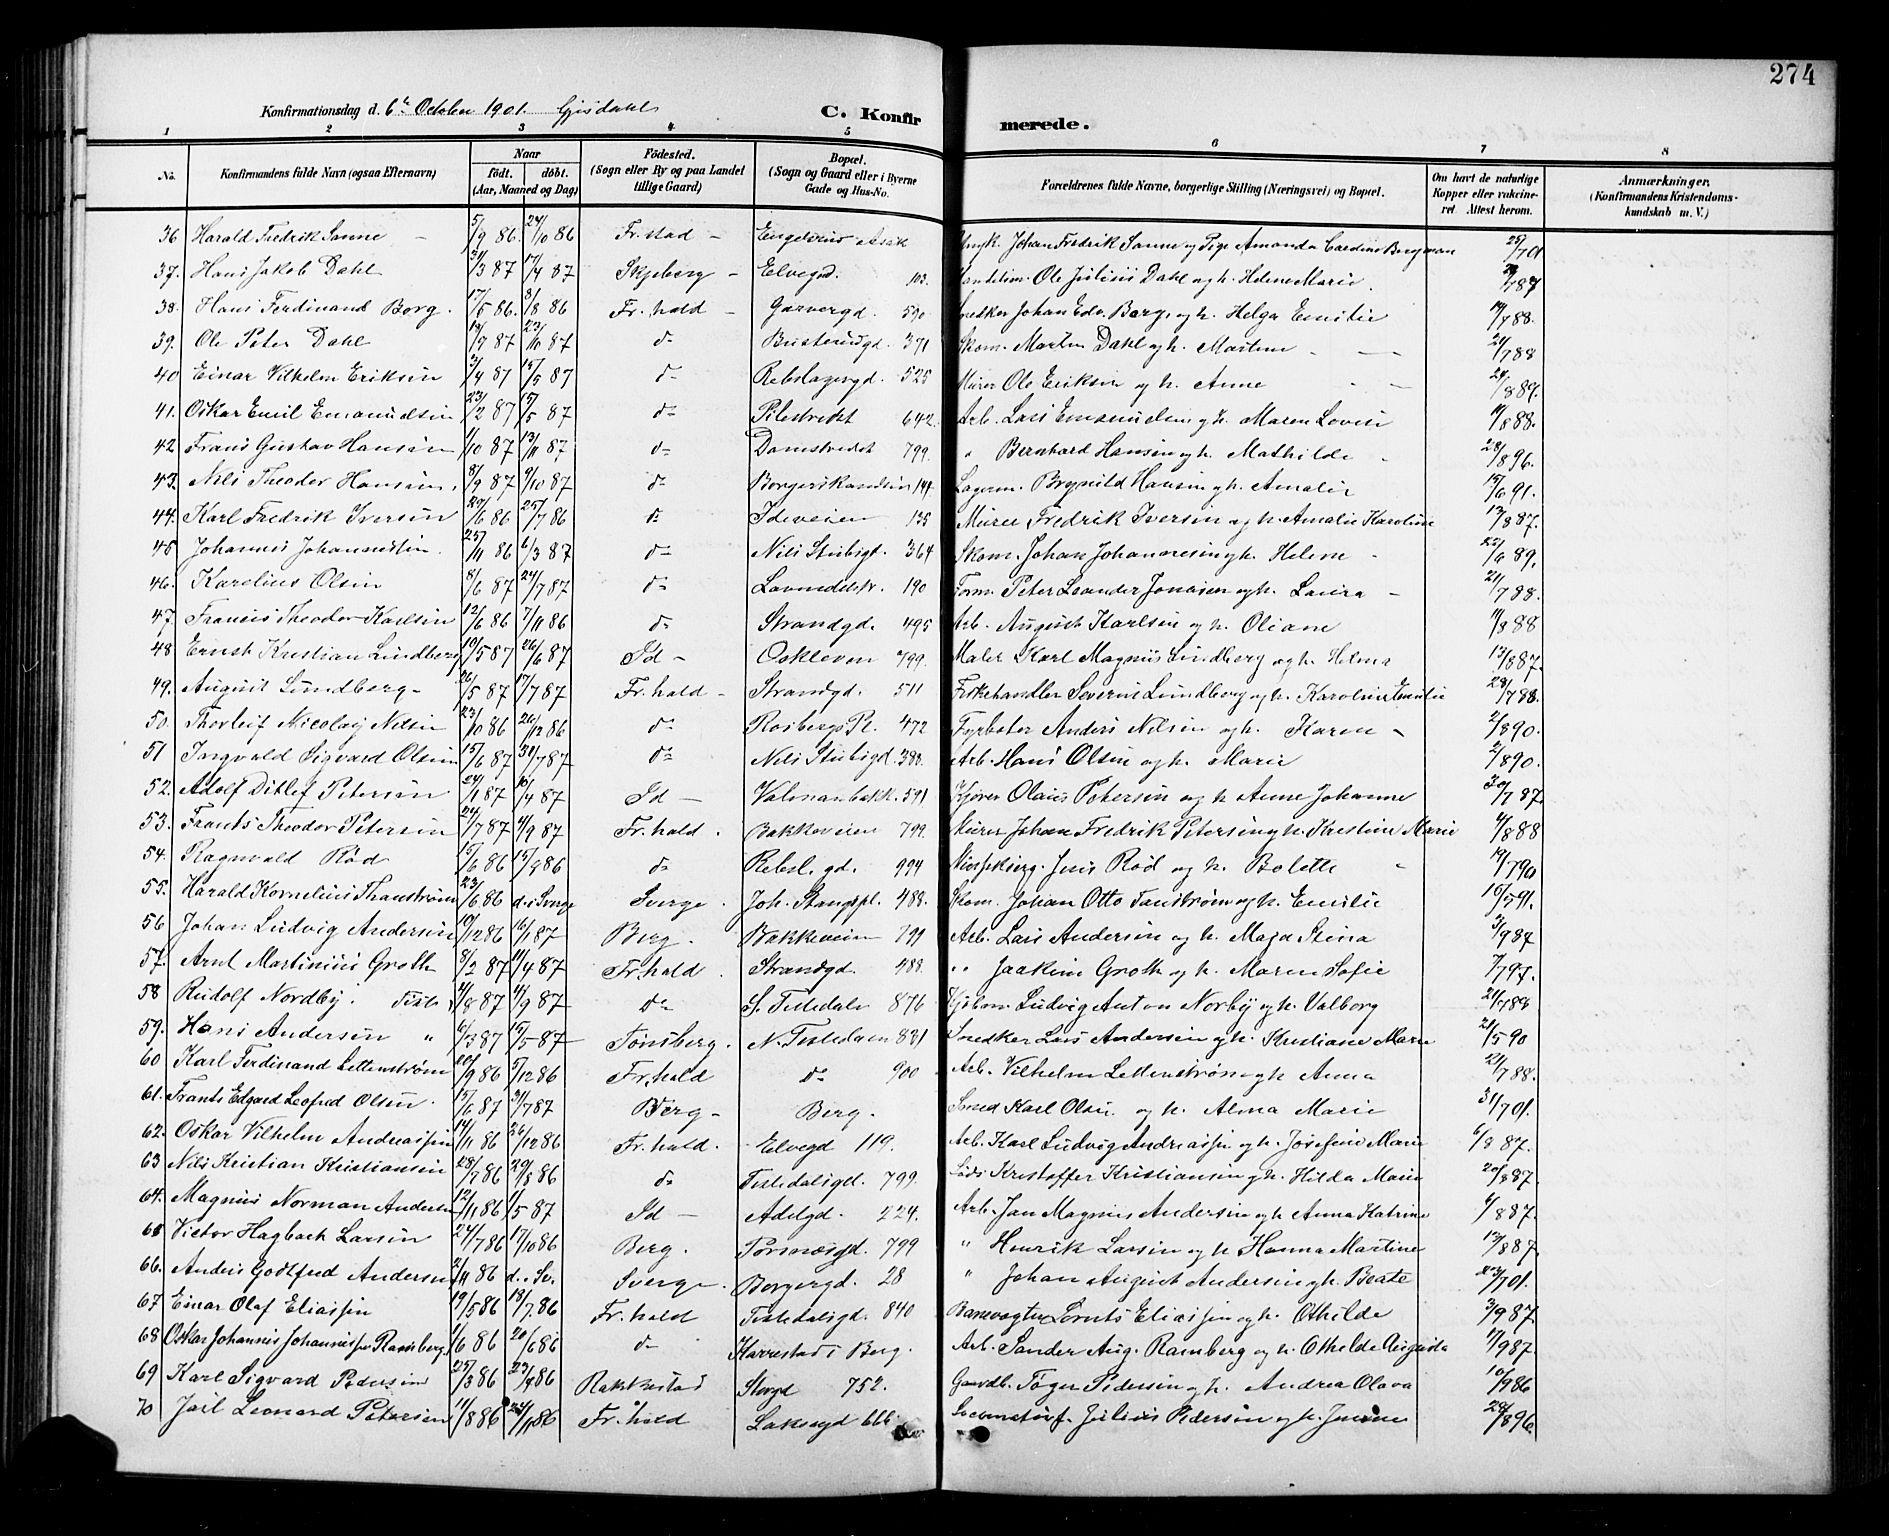 274
Konfirmationsdag d. 6te October 1901. C. Konfirmerede.
1 2 3 4 5 6 7 8
No. Konfirmandens fulde Navn (ogsaa Efternavn) Naar født. døbt. (Aar, Maaned og Dag) Födested. (Sogn eller By og paa Landet tillige Gaard) Bopæl. (Sogn og Gaard eller i Byerne Gade og Hus-No. Forældrenes fulde Navne, borgerlige Stilling (Næringsvei) og Bopæl. Om havt de naturlige Kopper eller vakcineret. Attest herom. Anmærkninger. (Konfirmandens Kristendomskundskab m. V.)
36 Harald Fredrik Sanne 5/9 86. 24/10 86 Fr.stad - Johan Fredrik Sanne og Pige Amanda 25/701
37. Hans Jakob Dahl 31/3 87 17/4 87 Skjeberg - Elvegd. 103. Ole Julius Dahl og h. Helene Marie.
38. Hans Ferdinand Borg. 17/5 86. 8/8 86 Fr.hald - Garvergd. 590 Snedker Johan Edv. Borg, og h. Helga Emilie 19/788.
39. Ole Peter Dahl 19/7 87 23/10 87 do 371 Skom. Martin Dahl og h. Martine 21/788
40 Einar Vilhelm Eriksen 2/4 87 15/5 87 do Rebslagergd. 525 Murer Ole Eriksen og h. Anne 29/887.
41. Oskar Emil Emanuelsen 23/2 87 15/5 87 do Pilestrædt 642. Arb. Lars Emanuelsen og h. Maren Lovise 17/888.
42 Frans Gustav Hansen 11/10 87 13/11 87 do Damstredet 799. " Bernhard Hansen og h. Mathilde 28/896.
43. Nils Theodor Hansen. 8/9 87 9/10 87 do 147. Lagerm. Hansen og h. Amalie 15/691.
44. Karl Fredrik Iversen 29/6 86 25/7 86 do Ideveien 135 Murer Fredrik Iversen og h. Amalie Karoline 13/887.
45 Johannes Johannessen. 25/11 86 6/3 87 do Nils Stubsgt. 364 Skom. Johan Johannesen og h. Helene 25/689.
46. Karelius Olsen 8/6 87 24/7 87 do 190 Form. Peter Leander Jonasen og h. Laura - 21/788.
47. Francis Theodor Karlsen 12/6 86 7/11 86 do Strandgd. 495 Arb. August Karlsen og h. Oliane 11/888
48 Ernst Kristian Lundberg 19/5 87 26/6 87 Id - Oskleven 799. Maler Karl Magnus Lundberg og h. Helma 13/887.
49. August Lundberg - 26/5 87 17/7 87 Fr.hald - Strandgd. 511 Fiskehandler Severin Lundberg og h. Karoline Emilie 28/788.
50. Thorleif Nicolay Nilsen 23/10 86 26/12 86 do Rosbergs Pl. 472 Fyrbøter Anders Nilsen og h. Karen - 2/890.
51 Ingvald Sigvard Olsen 15/6 87 31/7 87 do Nils Stubsgd. 388. Arb. Hans Olsen og h. Marie 2/890.
52. Adolf Ditlef Petersen 24/1 87 10/4 87 Id - 591 Kjører Olaus Petersen og h. Anne Johanne 30/787.
53. Frants Theodor Petersen 24/7 87 4/9 87 Fr.hald. Bakkeveien 799. Murer Johan Fredrik Petersen og h. Kristine Marie 4/888
54. Ragnvald Röd 15/6 86 15/9 86 do Rebsl. gd. 994 Jens Röd og h. Bolette 19/790
55. Harald Kornelius Thanström 23/6 86 d. i Sverge Sverge. Joh. Stangspl. 488. Skom. Johan Otto Tanström og h. Emilie 16/591.
56 Johan Ludvig Andersen 19/12 86 16/1 87 Berg. Bakkeveien 799 Arb. Lars Andersen og h. Maja Stina 3/987
57. Arnt Martinius Groth 8/2 87 11/4 87 Fr.hald. Strandgd. 488. " Joakim Groth og h. Maren Sofie 7/797.
58 Rudolf Nordby. Tist. 4/8 87 4/9 87 do S. Tistedalen 876 Ludvig Anton Norby og h. Valborg 21/788
59. Hans Andersen " 6/3 87 15/5 87 Tönsberg. N. Tistedalen 831 Snedker Lars Andersen og h. Kristiane Marie 21/590
60 Karl Ferdinand Lettenström 20/9 86 5/12 86 Fr.hald do 900 Arb. Vilhelm Lettenström og h. Anna 21/788.
61. Frants Edgard Leofred Olsen. 15/6 87 31/7 87 Berg - Berg. Karl Olsen og h. Alma Marie 31/701.
62. Oskar Vilhelm Andreassen 14/11 86 26/12 86 Fr.hald. Elvegd 119. Arb. Karl Ludvig Andreassen og h. Josefine Marie 6/887.
63 Nils Kristian Kristiansen 28/7 86 29/8 86 do Tistedalsgd. 799. Kristoffer Kristiansen og h. Hilda Marie 20/887.
64. Magnus Norman Andersen 12/11 86 1/5 87 Id - Adelgd. 224. Arb. Jan Magnus Andersen og h. Anna Katrine 4/887.
65 Victor Hagbart Larsen 24/7 86 17/10 86 Berg. 799 " Henrik Larsen og h. Hanna Martine 13/887.
66. Anders Godtfred Andersen 2/11 86 d. i Sv. Sverge. Borgergd. 28 " Johan August Andersen og h. Beate
67 Einar Olaf Eliassen 19/5 86 18/7 86 Fr.hald Tistedalsgd. 840 Banevogter Lornts Eliassen og h. Othilde 3/987.
68 Oskar Johannes Johannessen Ramberg. 1/6 86 20/6 86 do Karrestad i Berg. Arb. Sander Aug. Ramberg og h. Othilde Augusta 17/987.
69 Karl Sigvard Pedersen 25/3 86 23/9 86 Rakkestad Storgd 752. Gaardb. Töger Pedersen og h. Andrea Olava 10/986
70 Jarl Leonard Petersen 11/8 86 Fr.hald 666. Julius Pedersen og h. 28/896.